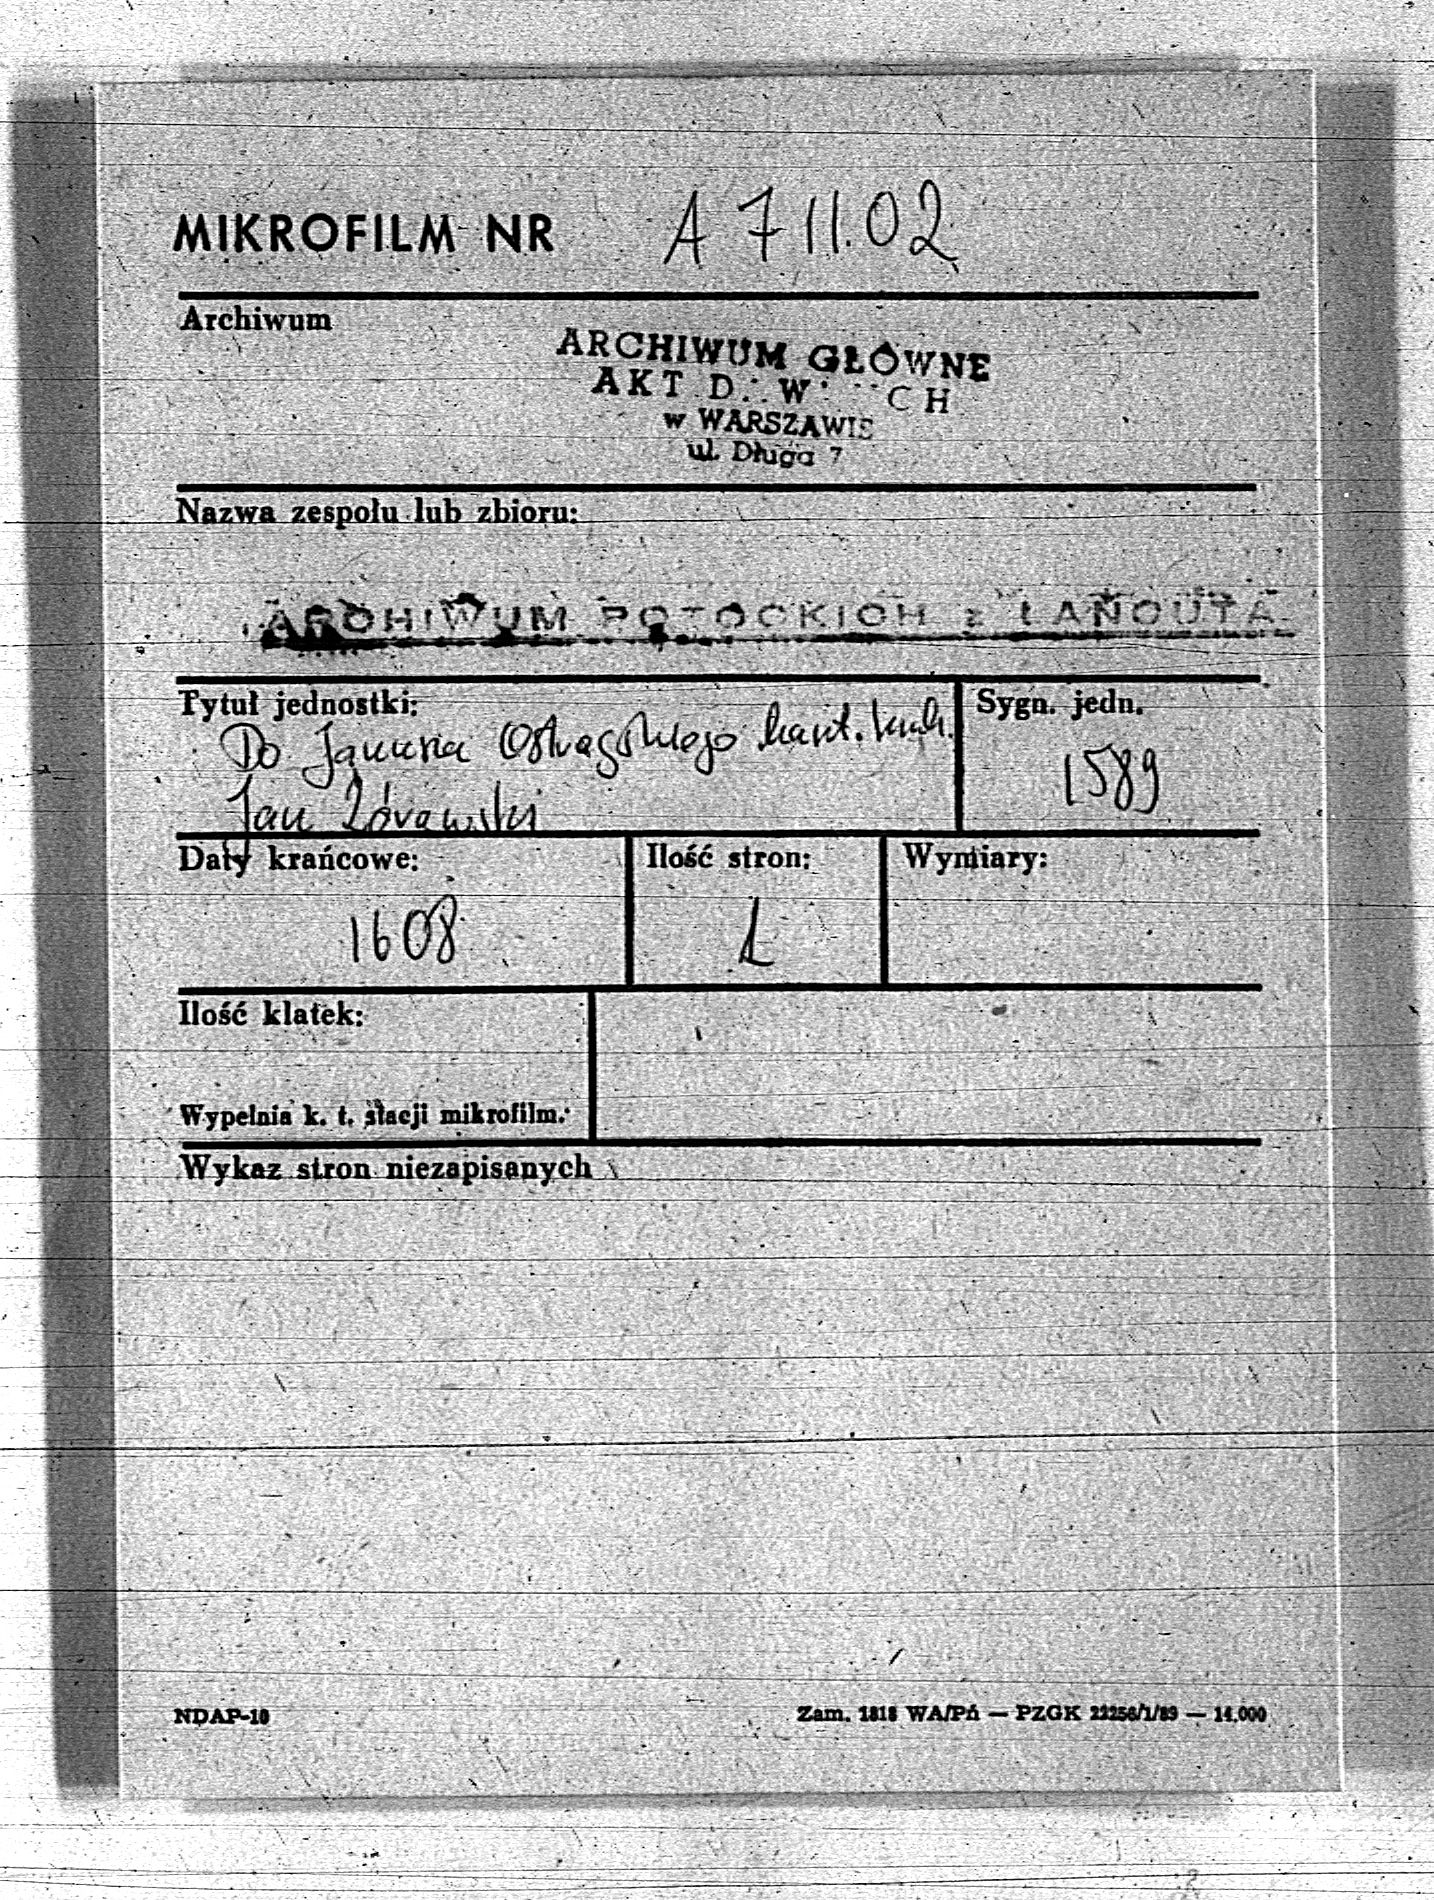 MIKROFILM NR A 711.02
Archiwum
ARCHIWUM GŁÓWNE
AKT D W CH
w WARSZAWIE
ul. Długa 7
Nazwa zespołu lub zbioru:
ARCHIWUM POTOCKICH z ŁAŃCUTA
Tytuł jednostki:
Do Janusza Ostrogskiego kaszt. krak.
Jan Żórawski
Sygn. jedn.
1589
Daty krańcowe:
1608
Ilość stron:
Wymiary:
Ilość klatek:
Wypełnia k. t. stacji mikrofilm.
Wykaz stron niezapisanych
NDAP-10
Zam. 1818 WA/Pń — PZGK 22256/1/89 — 14.000